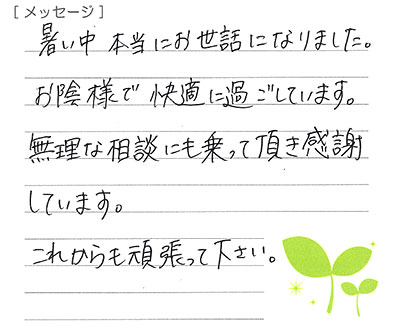 [メッセージ]
暑い中 本当にお世話になりました。
お陰様で 快適に過ごしています。
無理な相談にも乗って頂き感謝
しています。
これからも頑張って下さい。